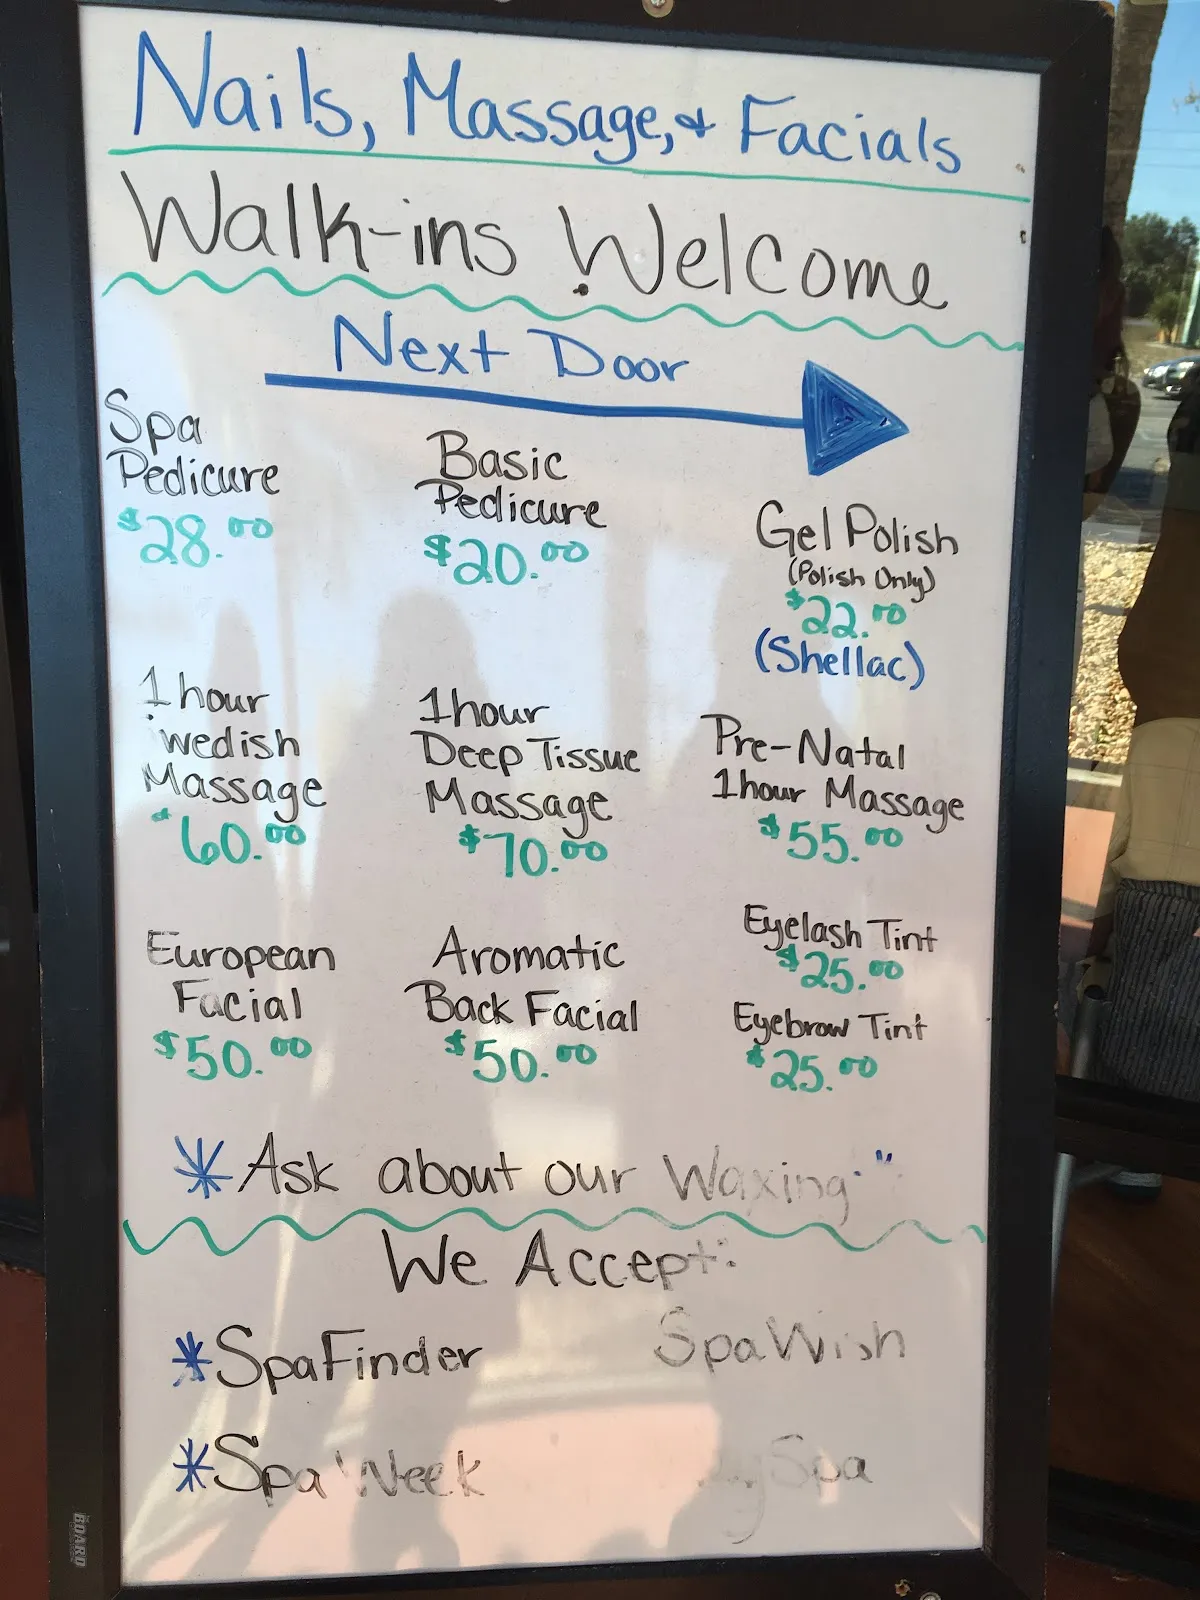 Nails, Massage, & Facials
Walk-ins Welcome
Next Door
Spa
Pedicure
$28.00
Basic
Pedicure
$20.00
Gel Polish
(Polish Only)
$22.00
(Shellac)
1 hour
wedish
Massage
$60.00
1 hour
Deep Tissue
Massage
$70.00
Pre-Natal
1 hour Massage
$55.00
European
Facial
$50.00
Aromatic
Back Facial
$50.00
Eyelash Tint
$25.00
Eyebrow Tint
$25.00
*Ask about our Waxing
We Accept:
*SpaFinder
SpaWish
*Spa Week
Spa
BOARD